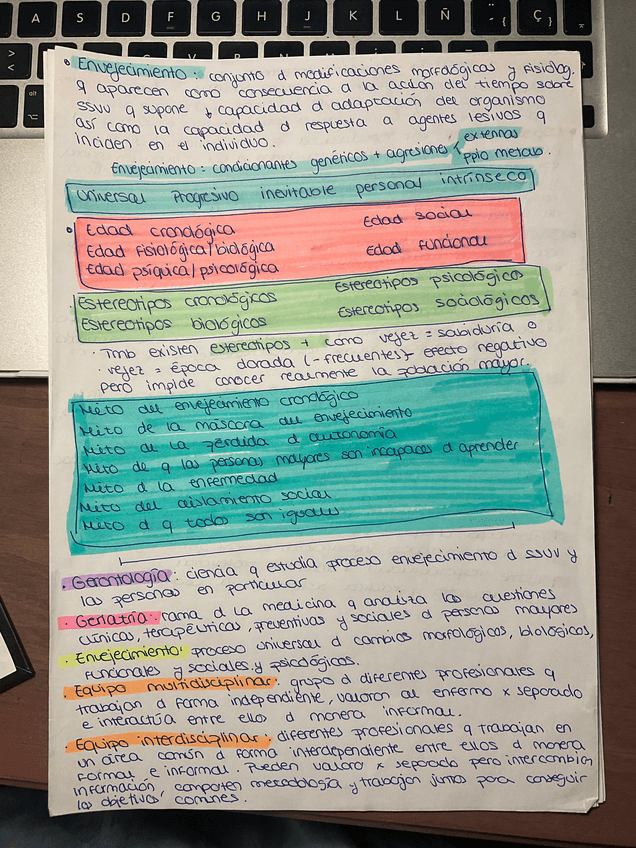 A S D F G H J K L Ñ Ç
alt
• Envejecimiento: conjunto d modificaciones morfológicas y fisiolog.
q aparecen como consecuencia a la acción del tiempo sobre
SSVV q supone ↓ capacidad d adaptación del organismo
así como la capacidad d respuesta a agentes lesivos q
inciden en el individuo.
Envejecimiento = condicionantes genéticos + agresiones < externas
pplo metab.
Universal Progresivo inevitable personal intrínseco
• Edad cronológica Edad social
Edad fisiológica/biológica Edad funcional
Edad psíquica/psicológica
Estereotipos cronológicos Estereotipos psicológicos
Estereotipos biológicos Estereotipos sociológicos
· Tmb existen estereotipos + como vejez = sabiduría o
vejez = época dorada (- frecuentes) efecto negativo
pero impide conocer realmente la población mayor.
Mito del envejecimiento cronológico
Mito de la máscara del envejecimiento
Mito de la pérdida d autonomía
Mito de q las personas mayores son incapaces d aprender
Mito d la enfermedad
Mito del aislamiento social
Mito d q todos son iguales
· Gerontología: ciencia q estudia proceso envejecimiento d SSVV y
las personas en particular
· Geriatría: rama d la medicina q analiza las cuestiones
clínicas, terapéuticas, preventivas y sociales d personas mayores
· Envejecimiento: proceso universal d cambios morfológicos, biológicos,
funcionales y sociales y psicológicos.
· Equipo multidisciplinar: grupo d diferentes profesionales q
trabajan d forma independiente, valoran al enfermo x separado
e interactúa entre ellos d manera informal.
· Equipo interdisciplinar: diferentes profesionales q trabajan en
un área común d forma interdependiente entre ellos d manera
formal e informal. Pueden valorar x separado pero intercambian
información, comparten metodología y trabajan juntos para conseguir
los objetivos comunes.